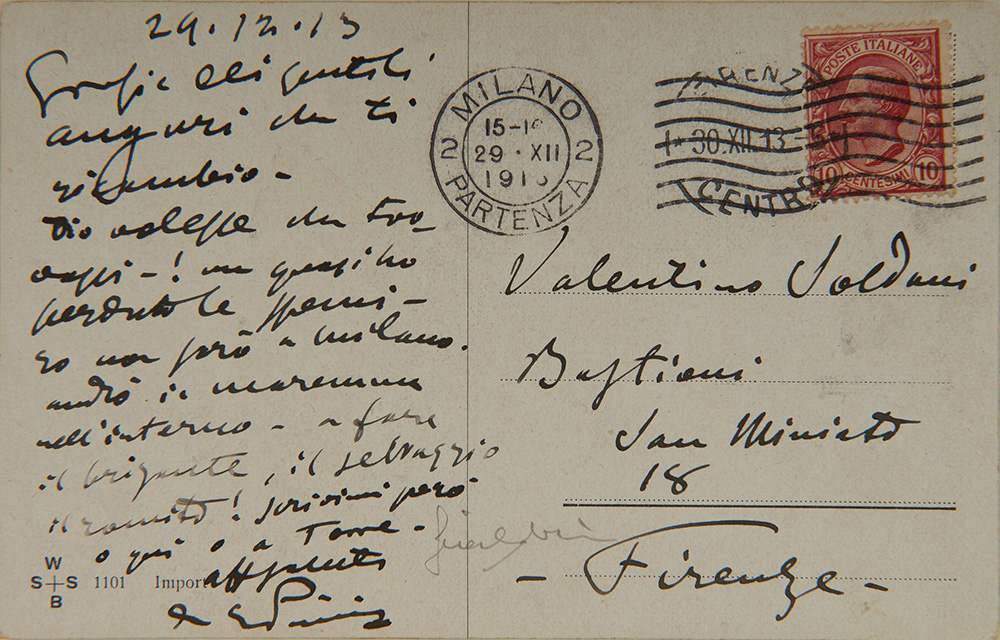 29.12.13
Grazie dei gentili
auguri che ti
ricambio -
Dio volesse che tro-
vassi -! ma quasi ho
perduto le speran-
ze non però a Milano.
andrò in maremma
nell'interno - a fare
il brigante, il selvaggio
il romito! scrivimi però
o qui o a Torre -
aff
MILANO
2 2
29 · XII
PARTENZA
30.XII.13
CENTRO
POSTE ITALIANE
10 CENTESIMI 10
Valentino Soldani
Bastioni
San Miniato
18
- Firenze -
W
S S
B
1101 Import